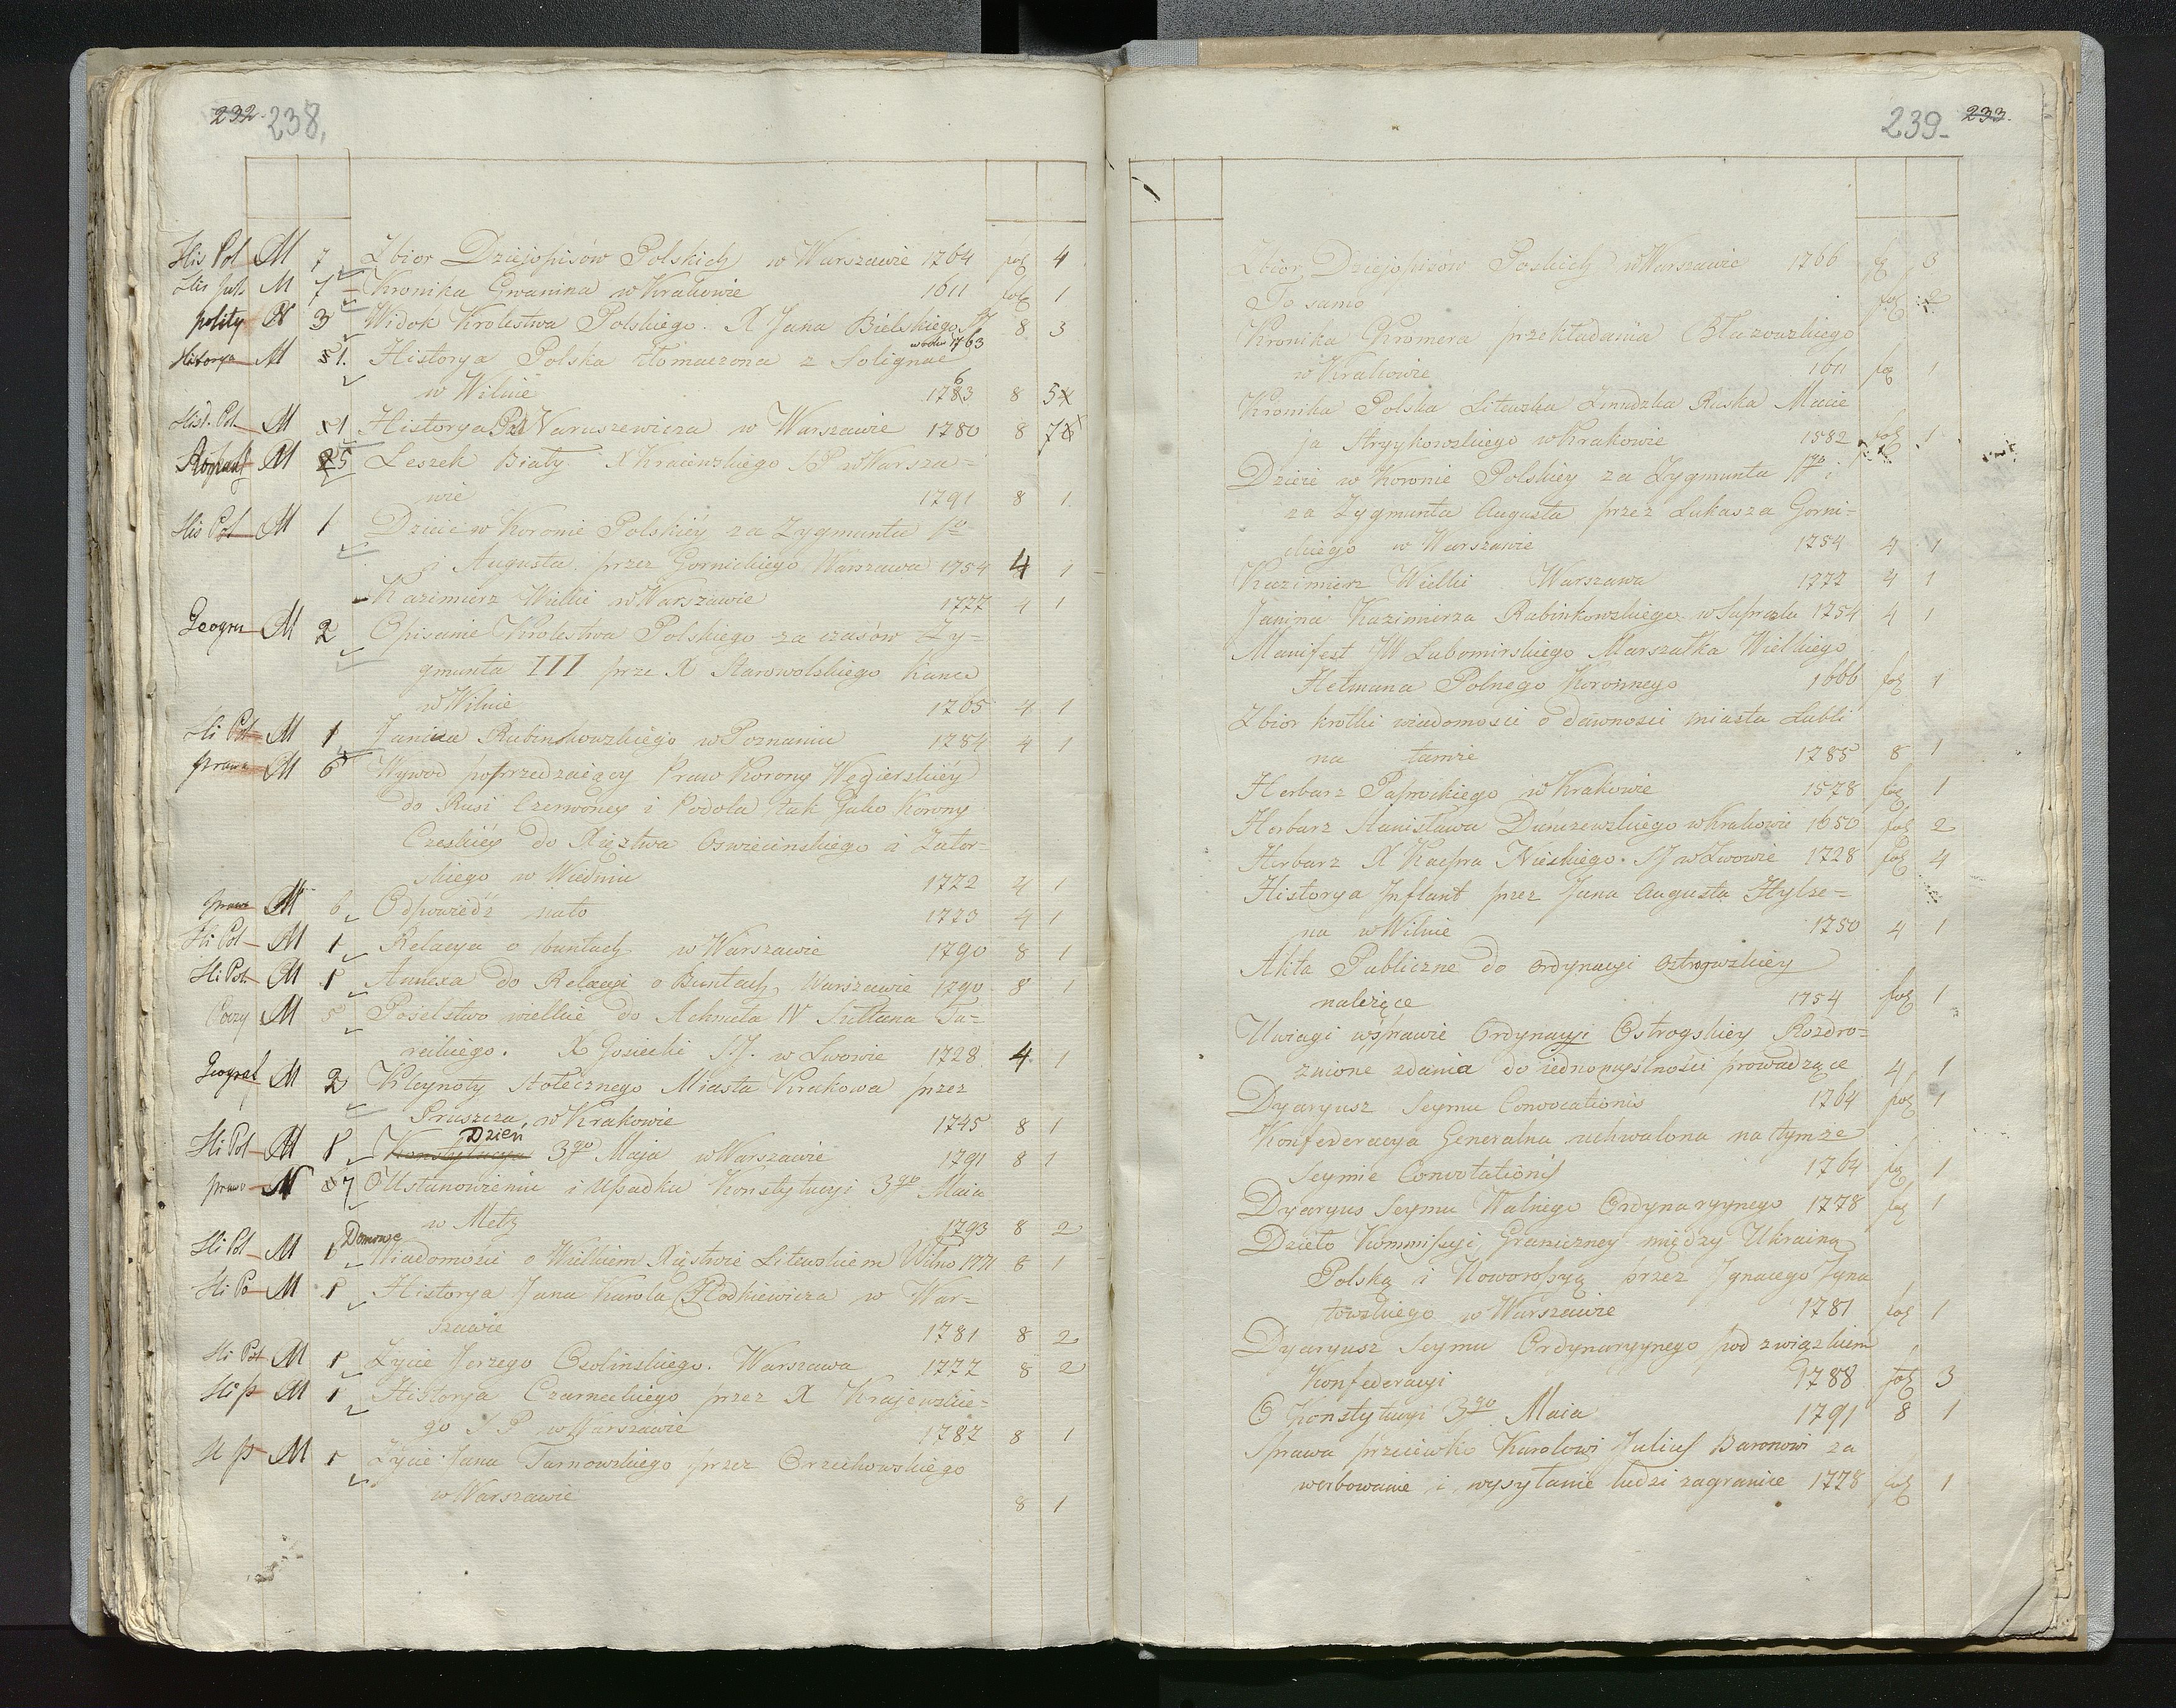 232. 238.
His Pol M 7 Zbior Dziejopisów Polskich w Warszawie 1764 fol 4
His Pol. M 7 Kronika Gwanina w Krakowie 1611 fol 1
polity M 3 Widok Krolestwa Polskiego. X Jana Bielskiego SJ 8 3
1763
Historya M 51. Historya Polska tłomaczona z Solignac
w Wilnie 1763 8 5
Hist. Pol. M 1 Historya Pol Naruszewicza w Warszawie 1780 8 7
Romans M 5 Leszek Biały X Kraiewskiego SP w Warsza=
wie 1791 8 1.
His Pol M 1 Dzieie w Koronie Polskiéy za Zygmunta 1go
i Augusta przez Gornickiego Warszawa 1754 4 1
Kazimierz Wielki w Warszawie 1777 4 1
Geogra M 2 Opisanie Krolestwa Polskiego za czasów Zy=
gmunta III prze X Starowolskiego Kano
w Wilnie 1765 4 1
Hi Pol M 1 Janina Rubinkowskiego w Poznaniu 1784 4 1
prawo M 6 Wywod poprzedzaiący Praw Korony Węgierskiéy
do Rusi Czerwoney i Podola tak Jako Korony
Czeskiéy do Xięztwa Oswiecinskiego i Zator=
skiego w Wiedniu 1772 4 1
prawo M 6 Odpowiédź nato 1773 4 1
Hi Pol M 1 Relacya o buntach w Warszawie 1790 8 1
Hi Pol. M 1 Annexa do Relacyi o Buntach, Warszawie 1790 8 1
Poezy M 5 Poselstwo wielkie do Achmeta IV Sułtana Tu=
reckiego. X Gosiecki SJ. w Lwowie 1728 4 1
Geograf M 2 Kleynoty stołecznego Miasta Krakowa przez
Pruszcza, w Krakowie 1745 8 1
Dzień
Hi Pol M 1 Konstytucya 3go Maja w Warszawie 1791 8 1
prawo M 7 O Ustanowieniu i Upadku Konstytucyi 3go Maia
w Metz 1793 8 2
Domowe
Hi Pol M 1 Wiadomości o Wielkiem Xięstwie Litewskiem Wilno 1771 8 1
Hi Po M 1 Historya Jana Karola Chodkiewicza w War=
szawie 1781 8 2
Hi Pol M 1 Zycie Jerzego Osolinskiego. Warszawa 1777 8 2
Hi p M 1 Historya Czarneckiego przez X Krajewskie=
go S P w Warszawie 1787 8 1
H p M 1 Życie Jana Tarnowskiego przez Orzechowskiego
w Warszawie 8 1
239. 233.
Zbior Dziejopisów Poskich w Warszawie 1766 f 3
To samo fol 2
Kronika Kromera przekładania Błazowskiego
w Krakowie 1611 fol 1
Kronika Polska Litewska Zmudzka Ruska Macie
ja Stryykowskiego w Krakowie 1582 fol 1
Dzieie w Koronie Polskiey za Zygmunta 1go i
za Zygmunta Augusta przez Lukasza Gorni=
ckiego w Warszawie 1754 4 1
Kazimierz Wielki Warszawa 1777 4 1
Janina Kazimierza Rubinkowskiego w Supraslu 1754 4 1
Manifest JW Lubomirskiego Marszałka Wielkiego
Hetmana Polnego Koronnego 1666 fol 1
Zbior krotki wiadomosci o dawnosci miasta Lubli
na tamże 1785 8 1
Herbarz Paprockiego w Krakowie 1578 fol 1
Herbarz Stanisława Dunczewskiego w Krakowie 1650 fol 2
Herbarz X Kacpra Nieskiego. SJ w Lwowie 1728 fol 4
Historya Jnflant przez Jana Augusta Hylze=
na w Wilnie 1750 4 1
Akta Publiczne do ordynacyi Ostrogskiey
należące 1754 fol 1
Uwiagi wsprawie Ordynacyi Ostrogskiey Rozdro=
żnione zdania do iednomyślności prowadzące 4 1
Dyaryusz Seymu Convocationis 1764 fol 1
Konfederacya Generalna uchwalona na tymże
Seymie Convocationis 1764 fol 1
Dyaryus Seymu Walnego Ordynaryynego 1778 fol 1
Dzieło Kommissyi Graniczney między Ukrainą
Polską i Noworossyą przez Jgnacego Jgna
towskiego w Warszawie 1781 fol 1
Dyaryusz Seymu Ordynaryynego pod związkiem
Konfederacyi 1788 fol 3
O Konstytucyi 3go Maia 1791 8 1
Sprawa przeciwko Karolowi Julius Baronowi za
werbowanie i wysyłanie ludzi zagranice 1778 fol 1